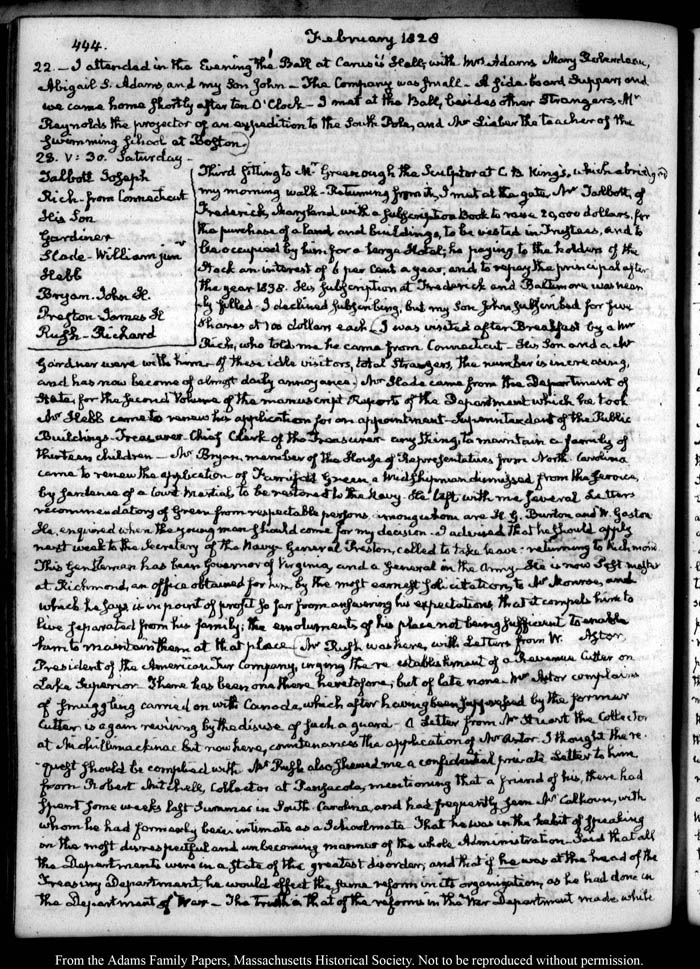 444.
February 1828
22.- I attended in the Evening the Ball at Carusi's Hall, with Mrs Adams Mary Roberdeau,
Abigail S. Adams, and my Son John - The Company was small - A side-board Supper, and
we came home shortly after ten O'Clock - I met at the Ball, besides other Strangers, Mr
Reynolds the projector of an expedition to the South Pole, and Mr Lieber the teacher of the
Swimming School at Boston.
23. V: 30. Saturday -
Talbott Joseph
Rich - from Connecticut
His Son
Gardiner
Slade - William junr
Hebb
Bryan. John H.
Preston James P.
Rush - Richard
Third sitting to Mr Greenough the Sculptor at C. B King's, which abridged
my morning walk - Returning from it, I met at the gate Mr Talbott, of
Frederick, Maryland with a subscription Book to raise 20,000 dollars, for
the purchase of a land and buildings, to be vested in Trustees, and to
be occupied by him for a large Hotel; he paying to the holders of the
Stock an interest of 6 per Cent a year, and to repay the principal after
the year 1838. His subscription at Frederick and Baltimore was near
ly filled - I declined subscribing, but my Son John subscribed for five
shares at 100 dollars each. I was visited after Breakfast by a Mr
Rich, who told me he came from Connecticut - His Son and a Mr
Gardner were with him. Of these idle visitors, total Strangers, the number is increasing,
and has now become of almost daily annoyance. Mr Slade came from the Department of
State, for the second Volume of the manuscript Reports of the Department which he took
Mr Hebb came to renew his application for an appointment - Superintendant of the Public
Buildings - Treasurer - Chief Clerk of the Treasurer - any thing, to maintain a family of
thirteen children - Mr Bryan, member of the House of Representatives from North Carolina
came to renew the application of Green a Midshipman dismissed from the service,
by Sentence of a Court Martial, to be restored to the Navy. He left with me several Letters
recommendatory of Green from respectable persons, among whom are H. G. Burton and W. Gaston
He enquired when the young man should come for my decision. I advised that he should apply
next week to the Secretary of the Navy - General Preston, called to take leave - returning to Richmond
This Gentleman has been Governor of Virginia, and a General in the Army - He is now Post master
at Richmond, an office obtained for him by the most earnest solicitation, to Mr Monroe, and
which he says is in point of profit so far from answering his expectations, that it compels him to
live separated from his family; the emoluments of his place not being sufficient to enable
him to maintain them at that place. Mr Rush was here, with Letters from W. Astor,
President of the American Fur Company, urging the re-establishment of a Revenue Cutter on
Lake Superior - There has been one there heretofore; but of late none. Mr Astor complains
of smuggling carried on with Canada, which after having been suppressed by the former
Cutter is again reviving by the disuse of such a guard - A Letter from Mr Stuart the Collector
at Michillimackinac but now here, countenances the application of Mr Astor. I thought the re-
quest should be complied with. Mr Rush also shewed me a confidential private Letter to him
from Robert Mitchell, Collector at Pensacola, mentioning that a friend of his, there had
spent some weeks last Summer in South Carolina, and had frequently seen Mr Calhoun, with
whom he had formerly been intimate as a Schoolmate. That he was in the habit of speaking
in the most disrespectful and unbecoming manner of the whole Administration - Said that all
the Departments were in a State of the greatest disorder; and that if he was at the head of the
Treasury Department, he would effect the same reform in its organization, as he had done in
the Department of War - The truth is that of the reforms in the War Department made while
From the Adams Family Papers, Massachusetts Historical Society. Not to be reproduced without permission.